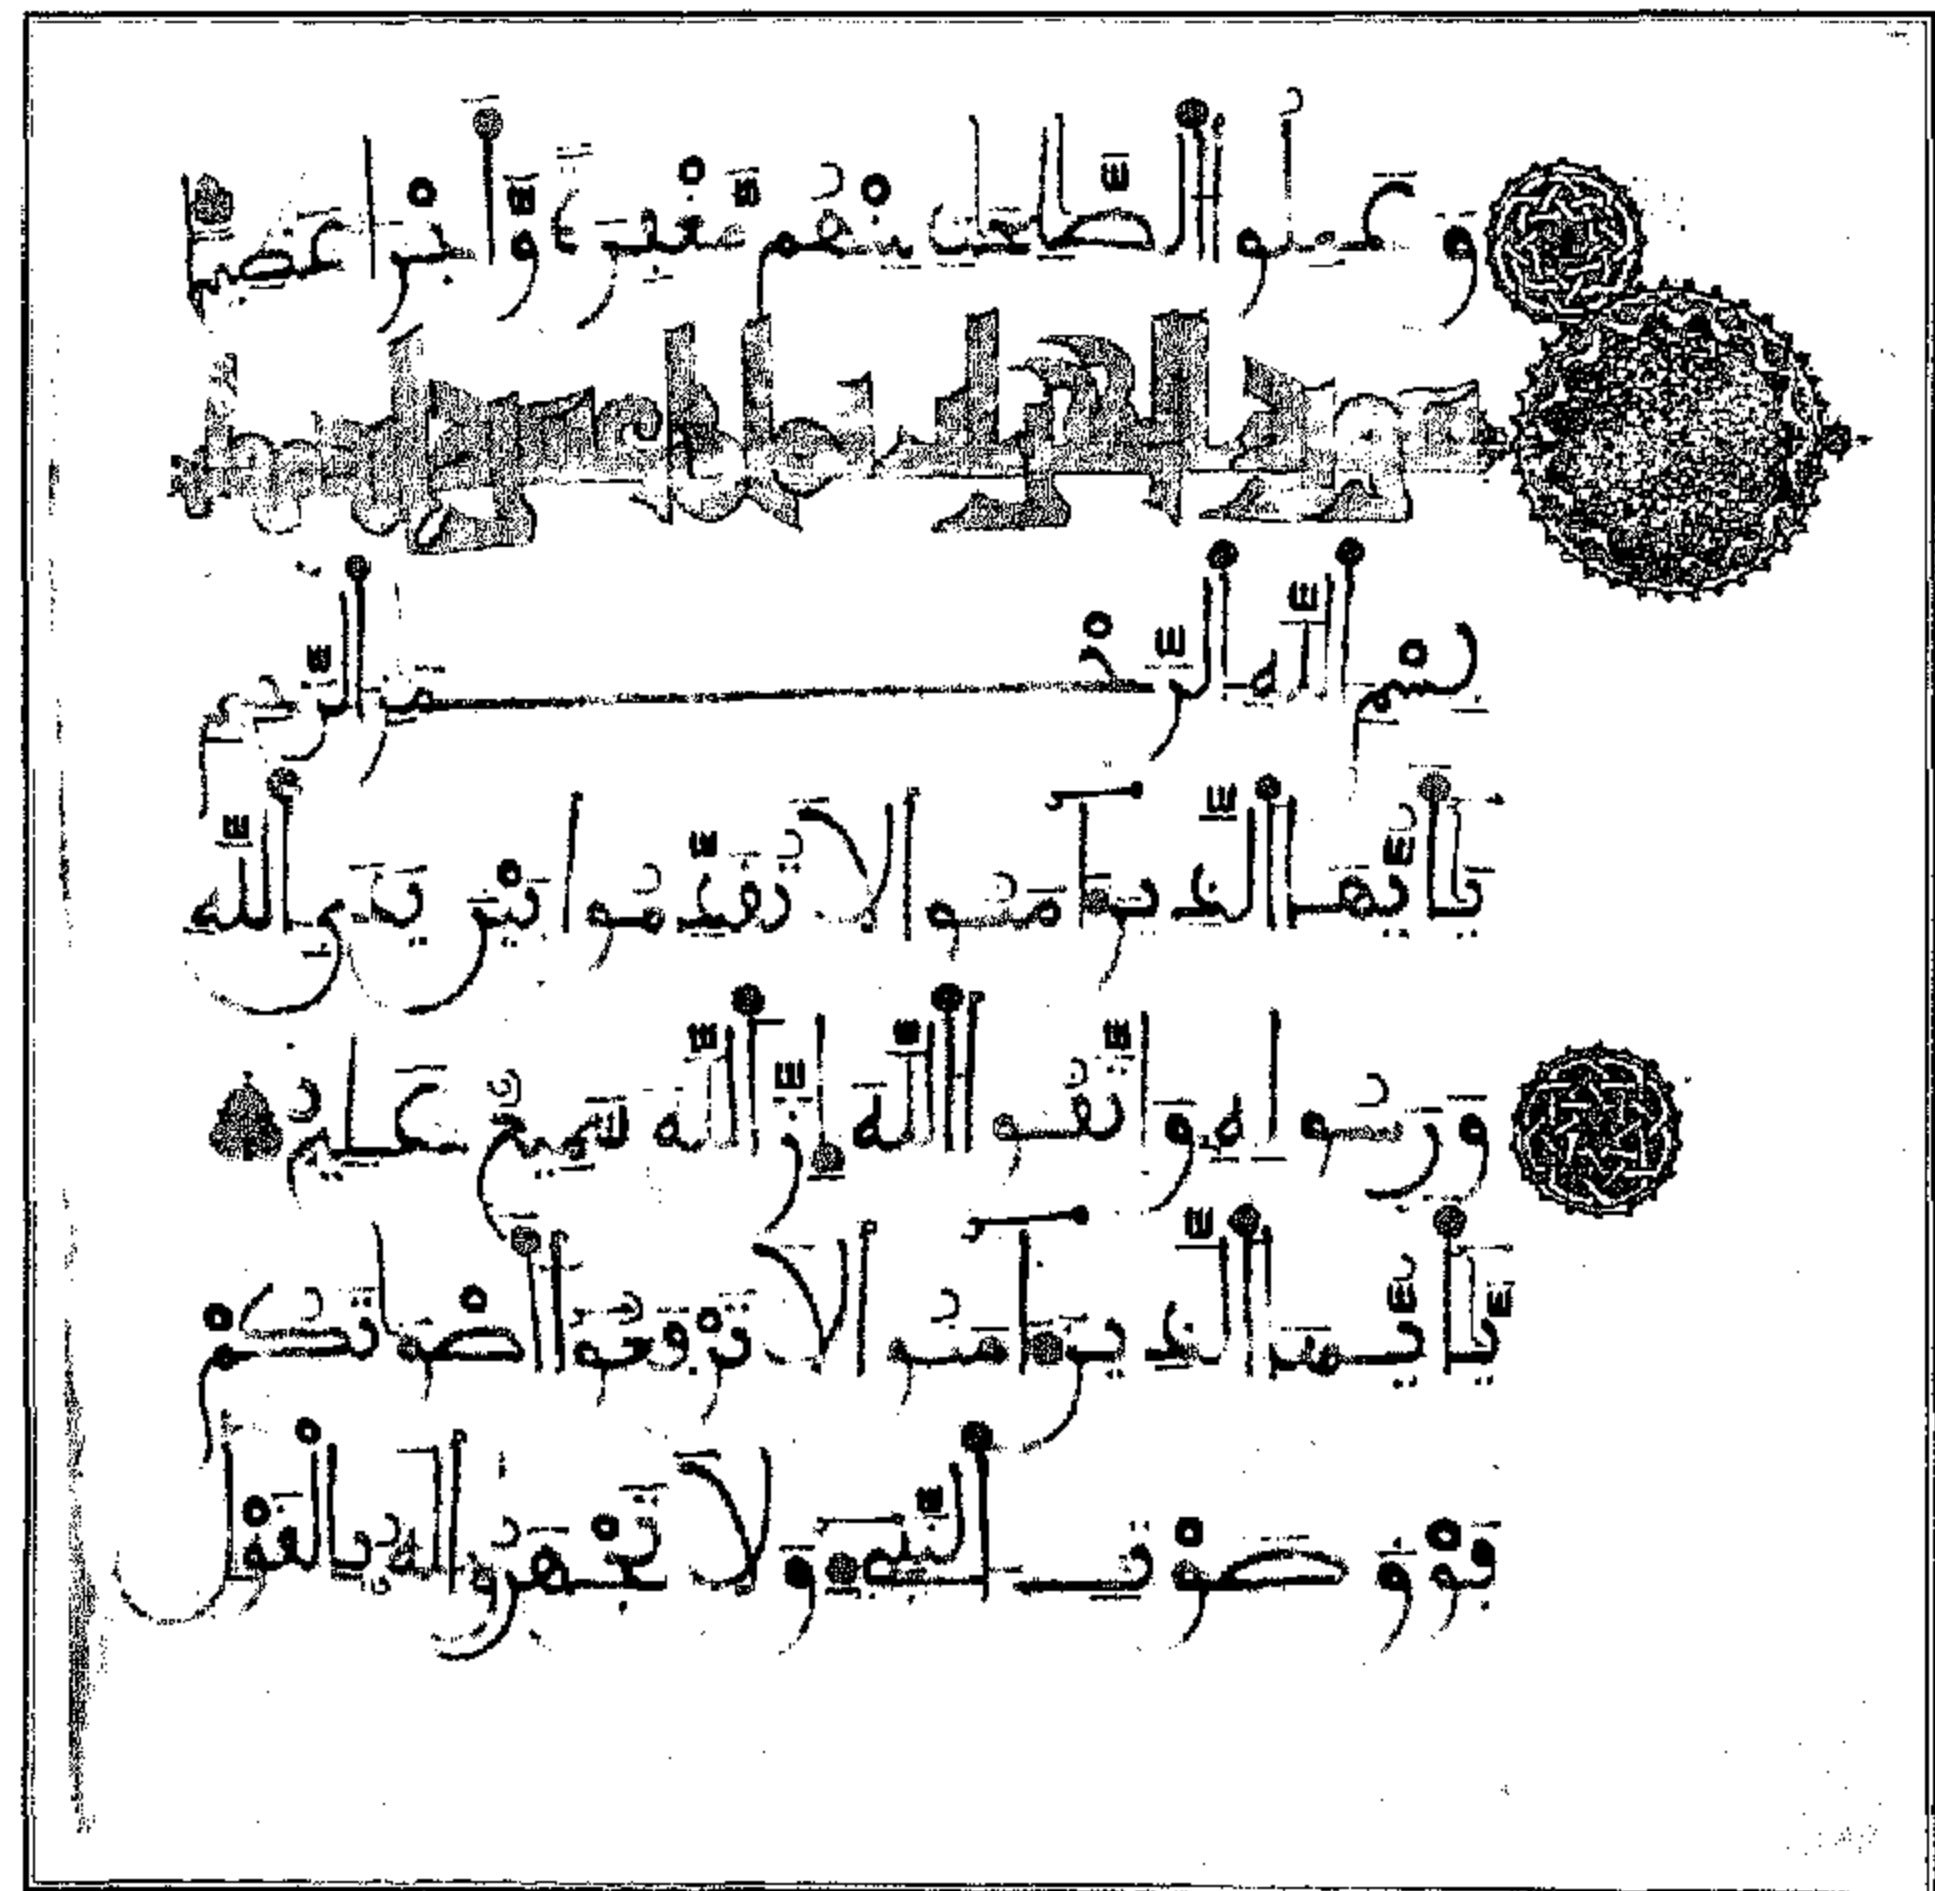 وعملوا الصالحات منهم مغفرة وأجرا عظيما
بسم الله الرحمن الرحيم
يأيها الذين ءامنوا لا تقدموا بين يدي الله
ورسوله واتقوا الله إن الله سميع عليم
يأيها الذين ءامنوا لا ترفعوا أصواتكم
فوق صوت النبيء ولا تجهروا له بالقول